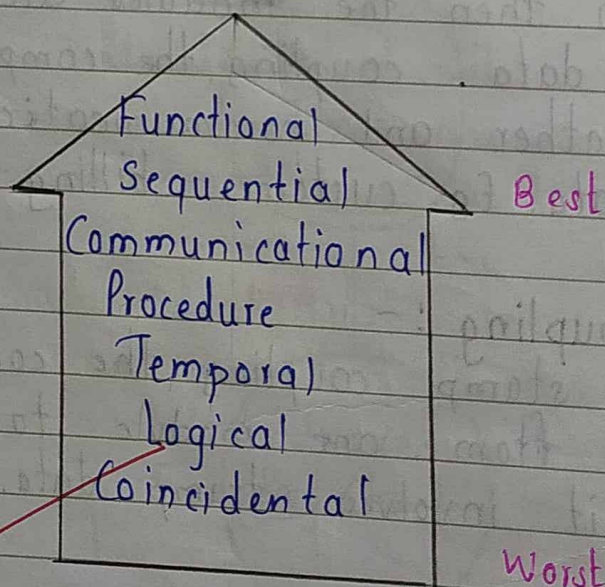 Functional
Sequential
Best
Communicational
Procedure
Temporal
Logical
Coincidental
Worst